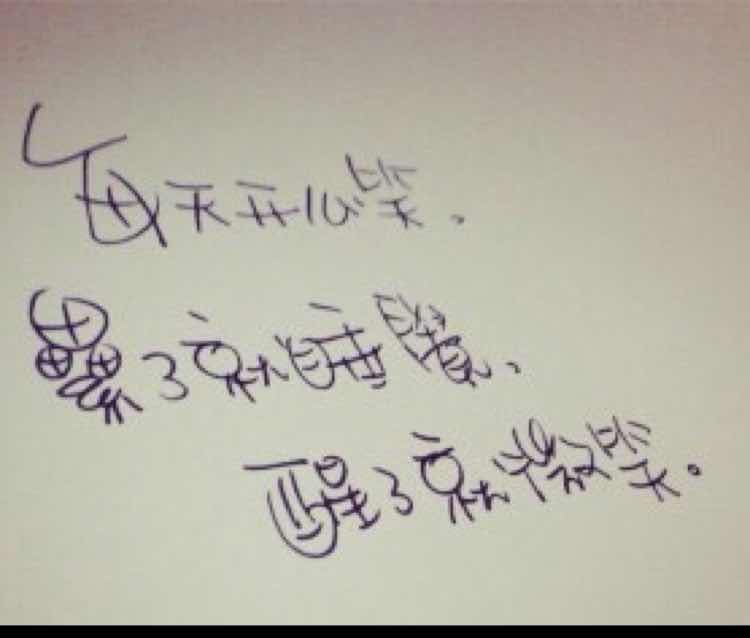 每天开心笑.
纍了就睡覺、
醒了就微笑。